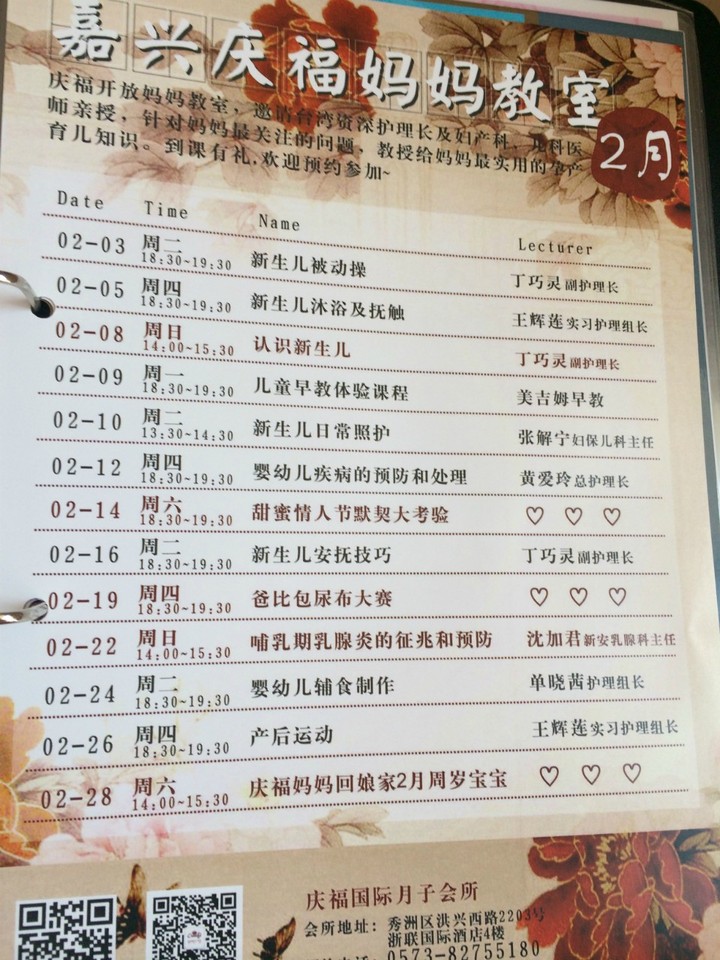 嘉兴庆福妈妈教室
庆福开放妈妈教室，邀请台湾资深护理长及妇产科、儿科医
师亲授，针对妈妈最关注的问题，教授给妈妈最实用的孕产
育儿知识。到课有礼，欢迎预约参加~
2月
Date Time Name Lecturer
02-03 周二 18:30~19:30 新生儿被动操 丁巧灵副护理长
02-05 周四 18:30~19:30 新生儿沐浴及抚触 王辉莲实习护理组长
02-08 周日 14:00~15:30 认识新生儿 丁巧灵副护理长
02-09 周一 18:30~19:30 儿童早教体验课程 美吉姆早教
02-10 周二 13:30~14:30 新生儿日常照护 张解宁妇保儿科主任
02-12 周四 18:30~19:30 婴幼儿疾病的预防和处理 黄爱玲总护理长
02-14 周六 18:30~19:30 甜蜜情人节默契大考验 ♡ ♡ ♡
02-16 周二 18:30~19:30 新生儿安抚技巧 丁巧灵副护理长
02-19 周四 18:30~19:30 爸比包尿布大赛 ♡ ♡ ♡
02-22 周日 14:00~15:30 哺乳期乳腺炎的征兆和预防 沈加君新安乳腺科主任
02-24 周二 18:30~19:30 婴幼儿辅食制作 单晓茜护理组长
02-26 周四 18:30~19:30 产后运动 王辉莲实习护理组长
02-28 周六 14:00~15:30 庆福妈妈回娘家2月周岁宝宝 ♡ ♡ ♡
庆福国际月子会所
会所地址：秀洲区洪兴西路2203号
浙联国际酒店4楼
0573-82755180